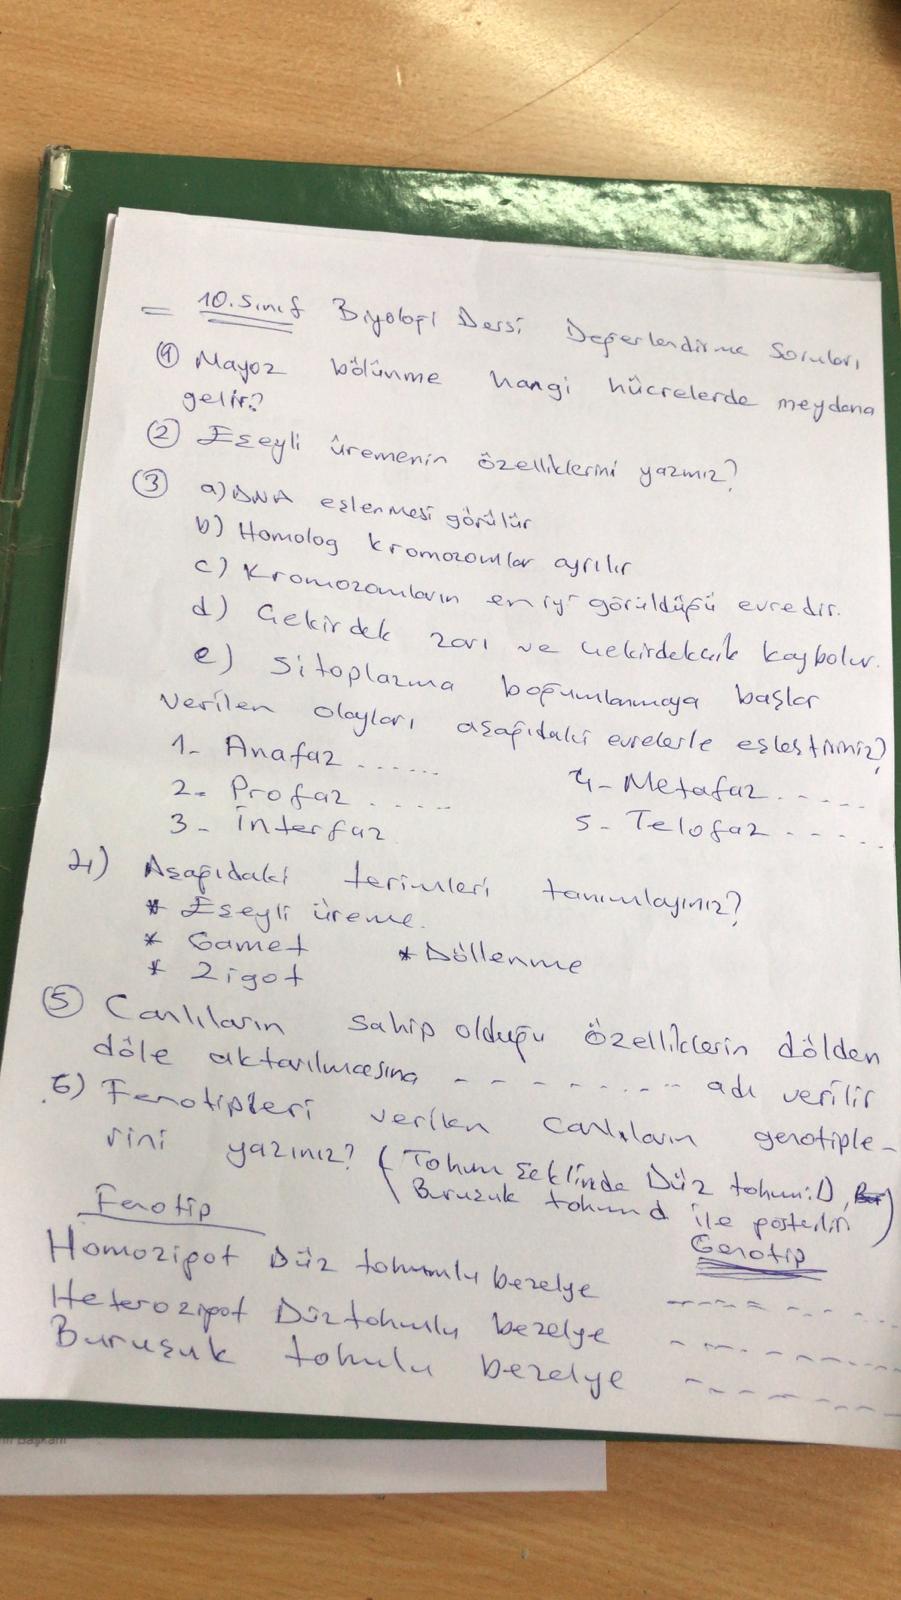 = 10. Sınıf Biyoloji Dersi Değerlendirme Soruları
① Mayoz bölünme hangi hücrelerde meydana
gelir?
② Eşeyli üremenin özelliklerini yazınız?
③ a) DNA eşlenmesi görülür
b) Homolog kromozomlar ayrılır
c) Kromozomların en iyi görüldüğü evredir.
d) Çekirdek zarı ve çekirdekcik kaybolur.
e) Sitoplazma boğumlanmaya başlar
Verilen olayları aşağıdaki evrelerle eşleştiriniz?
1- Anafaz ...... 4- Metafaz .....
2- Profaz ..... 5- Telofaz .....
3- İnterfaz
4) Aşağıdaki terimleri tanımlayınız?
* Eşeyli üreme.
* Gamet * Döllenme
* Zigot
⑤ Canlıların sahip olduğu özelliklerin dölden
döle aktarılmasına -------- adı verilir
6) Fenotipleri verilen canlıların genotiple-
rini yazınız? (Tohum şeklinde Düz tohum: D,
Buruşuk tohum d ile gösterilir)
Fenotip Genotip
Homozigot Düz tohumlu bezelye --------
Heterozigot Düz tohumlu bezelye --------
Buruşuk tohulu bezelye --------